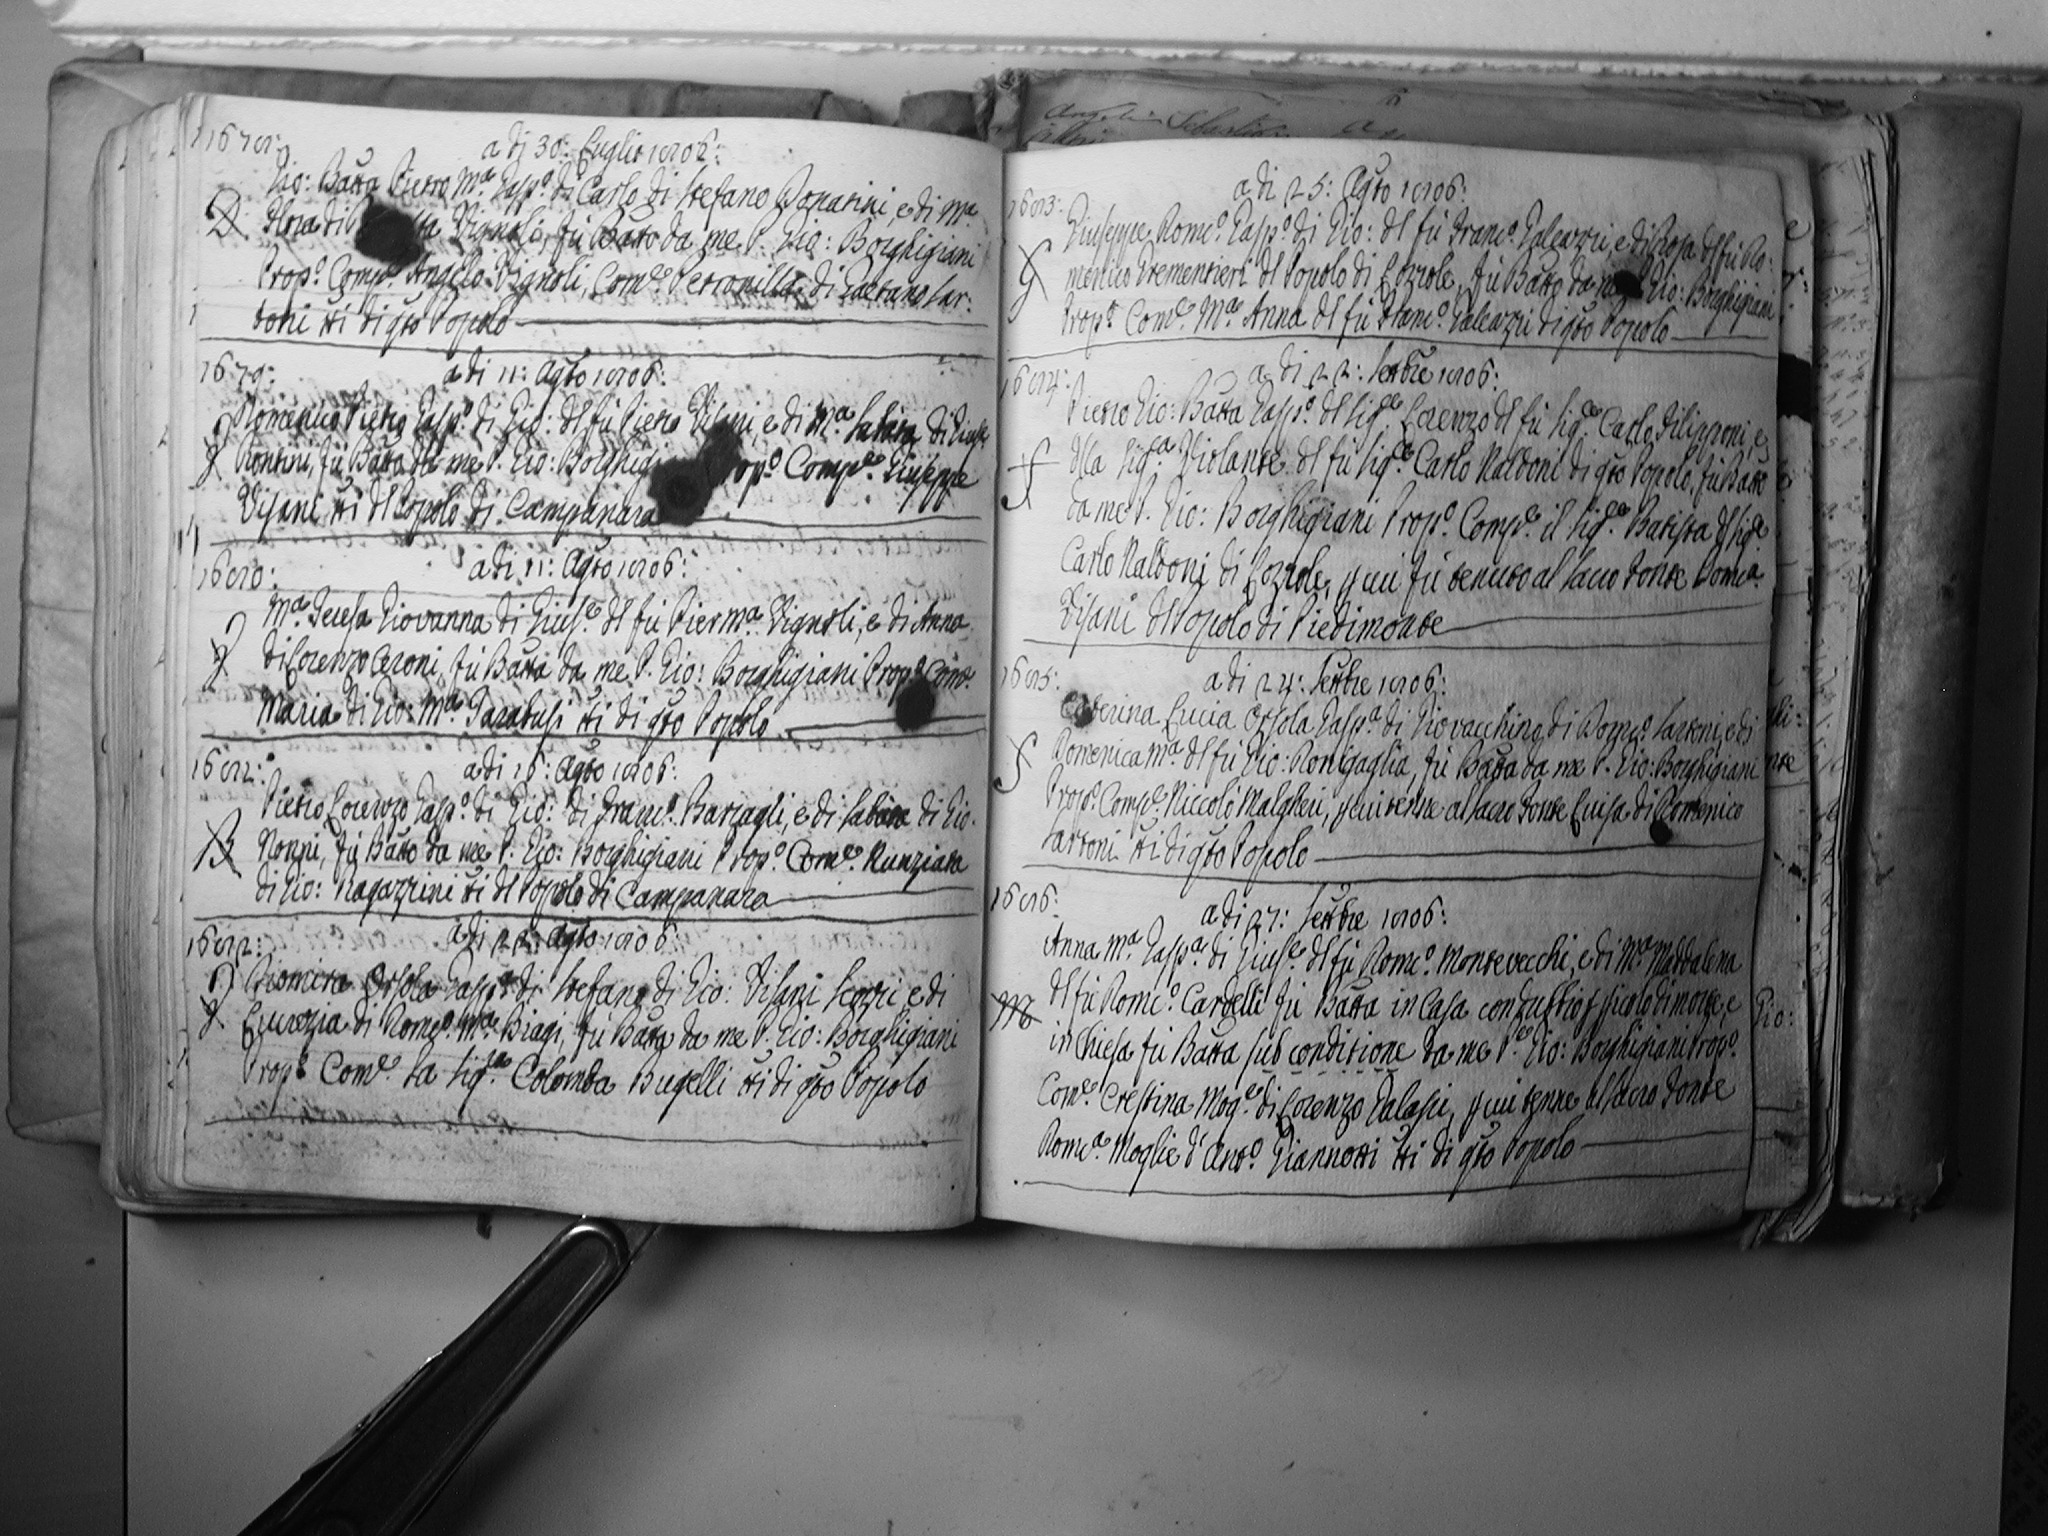 a di 30: Luglio 1806:
Gio: Batta Pietro M.ª Gasp.º di Carlo di Stefano Donatini, e di M.ª
Flora di Vignoli, fù Batto da me P. Gio: Borghigiani
Prop.º Comp.e Angelo Vignoli, Com.e Petronilla di Gaetano Sar:
toni tti di qto Popolo
1679:
a di 11: Agto 1806:
Domenico Pietro Gasp.º di Gio: dl fù Pietro Visani, e di M.ª Sabata di Giuse
Rontini, fù Batto da me P. Gio: Borghigi Prop.º Comp.e Giuseppe
Visani tti dl Popolo di Campanara
1680:
a di 11: Agto 1806:
M.ª Teresa Giovanna di Gius.e dl fù Pier M.ª Vignoli, e di Anna
di Lorenzo Ceroni, fù Batta da me P. Gio: Borghigiani Prop.º Com.e
Maria di Gio: M.ª Tarabusi tti di qto Popolo
a di 16: Agto 1806:
Pietro Lorenzo Gasp.º di Gio: di Franc.º Barzagli, e di Sabina di Gio.
B Nonni, fù Batto da me P. Gio: Borghigiani Prop.º Com.e Nunziata
di Gio: Ragazzini tti dl Popolo di Campanara
1682:
a di 22: Agto 1806:
Diomira Orsola Gasp.ª di Stefano di Gio: Visani Scozzi e di
Lucrezia di Dom.º M.ª Biagi, fù Batta da me P. Gio: Borghigiani
Prop.º Com.e La Sig.ra Colomba Bugelli tti di qto Popolo
a di 25: Agto 1806:
1683:
Giuseppe Dom.º Gasp.º di Gio: dl fù Franc.º Galeazzi, e di Rosa dl fù Do:
G menico Vrementieri dl Popolo di Lozzole, fù Batto da me P. Gio: Borghigiani
Prop.º Com.e M.ª Anna dl fù Franc.º Galeazzi di qto Popolo
1684:
a di 22: Settbre 1806:
Pietro Gio: Batta Gasp.º dl Sig.e Lorenzo dl fù Sig.e Carlo Filipponi, e
F dlla Sig.ª Violante dl fù Sig.e Carlo Naldoni di qto Popolo, fù Batto
da me P. Gio: Borghigiani Prop.º Comp.e il Sig.e Batista dl Sig.e
Carlo Naldoni di Lozzole, p cui fù tenuto al Sacro Fonte Domca
Visani dl Popolo di Piedimonte
1685:
a di 24: Settbre 1806:
Catterina Lucia Orsola Gasp.ª di Giovacchino di Dom.º Sartoni, e di
S Domenica M.ª dl fù Gio: Ronigaglia, fù Batta da me P. Gio: Borghigiani
Prop.º Comp.e Niccolò Malgheri, p cui tenne al Sacro Fonte Luisa di Domenico
Sartoni tti di qto Popolo
1686:
a di 27: Settbre 1806:
Anna M.ª Gasp.ª di Gius.e dl fù Dom.º Montevecchi, e di M.ª Maddalena
M dl fù Dom.º Cardelli fù Batta in Casa con dubbio p piccolo di morte, e
in Chiesa fù Batta sub conditione da me P.e Gio: Borghigiani Prop.º
Com.e Crestina Mog.e di Lorenzo Galassi, p cui tenne al Sacro Fonte
Dom.ª Moglie d' Ant.º Giannotti tti di qto Popolo